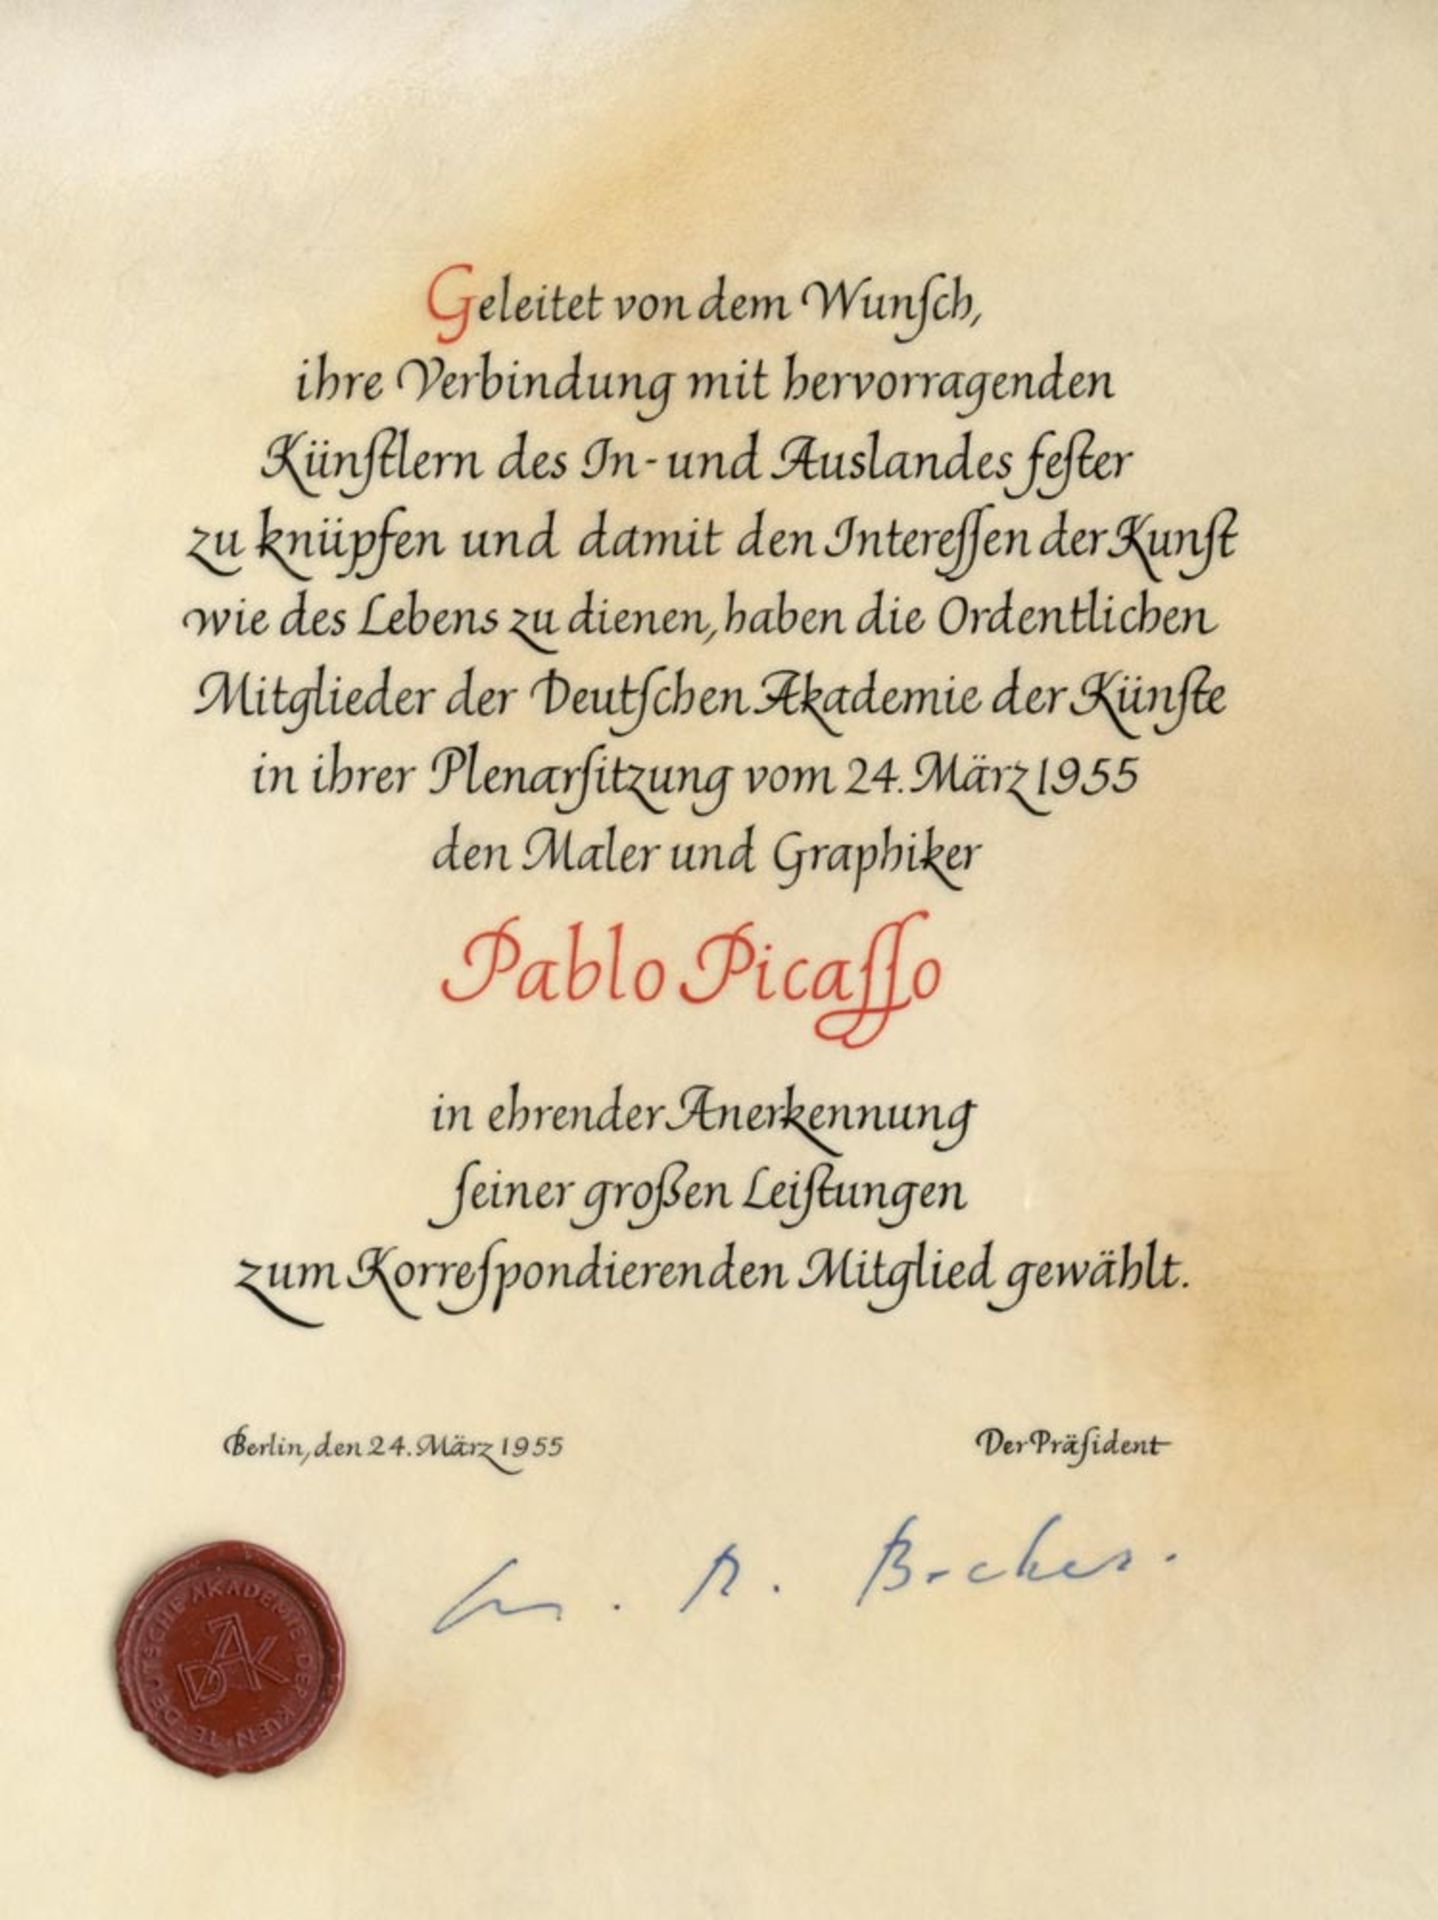 Geleitet von dem Wunſch,
ihre Verbindung mit hervorragenden
Künſtlern des In- und Auslandes feſter
zu knüpfen und damit den Intereſſen der Kunſt
wie des Lebens zu dienen, haben die Ordentlichen
Mitglieder der Deutſchen Akademie der Künſte
in ihrer Plenarſitzung vom 24. März 1955
den Maler und Graphiker
Pablo Picaſſo
in ehrender Anerkennung
ſeiner großen Leiſtungen
zum Korreſpondierenden Mitglied gewählt.
Berlin, den 24. März 1955
Der Präſident
R. Becher.
DEUTSCHE AKADEMIE DER
DAK